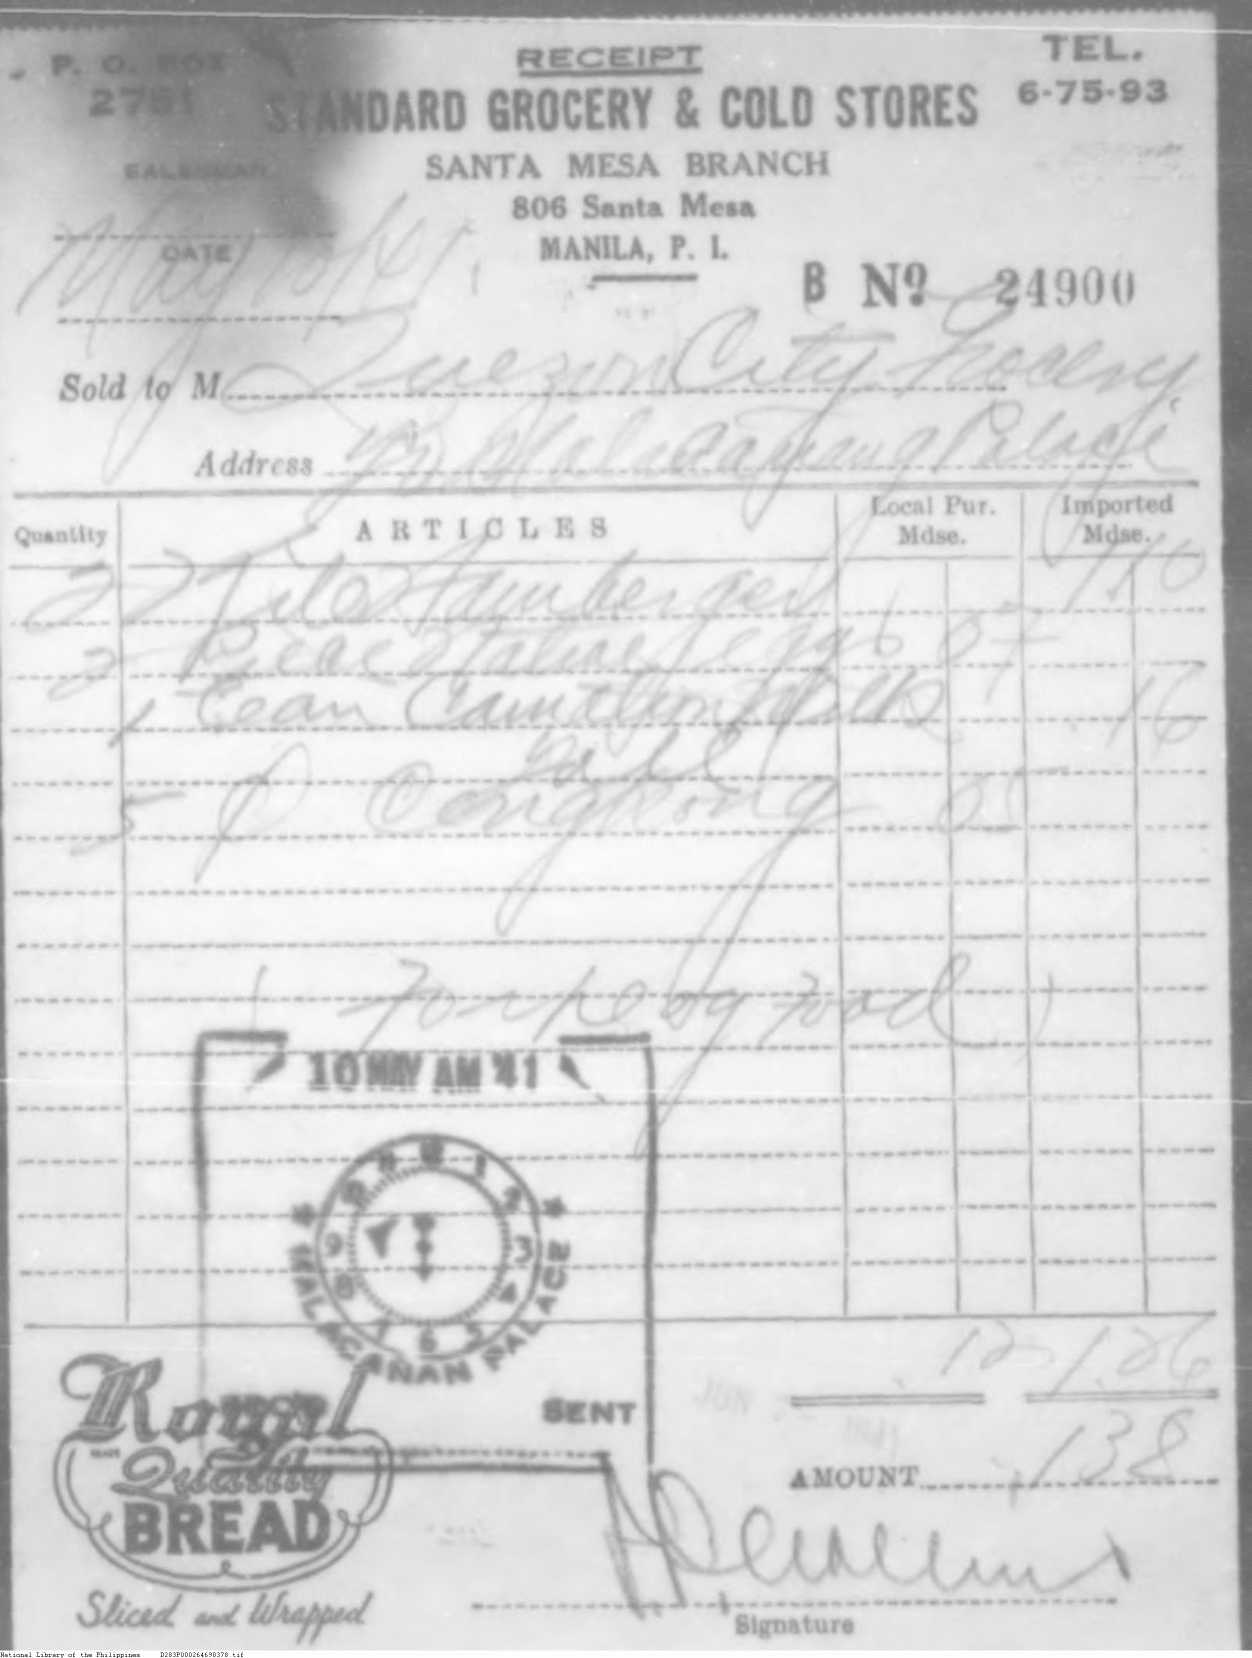 RECEIPT
TEL.
6-75-93
P. O. BOX
2751
STANDARD GROCERY & COLD STORES
SALESMAN
SANTA MESA BRANCH
806 Santa Mesa
MANILA, P. I.
DATE
May 10/41.
B Nº 24900
Sold to M Quezon City Grocery
Address Malacañang Palace
Quantity
ARTICLES
Local Pur. Mdse.
Imported Mdse.
2 Kilo Hamburger 1.10
2 Native eggs 07
1 Can Carnation Milk 16
5 Congkong 05
For Food
10 MAY AM '41
12 1 2 3 4 5 6 7 8 9 10 11
MALACAÑAN PALACE
12 1.26
SENT
Royal
Quality
BREAD
Sliced and Wrapped
AMOUNT 1.38
Signature
National Library of the Philippines D283P000264698378.tif